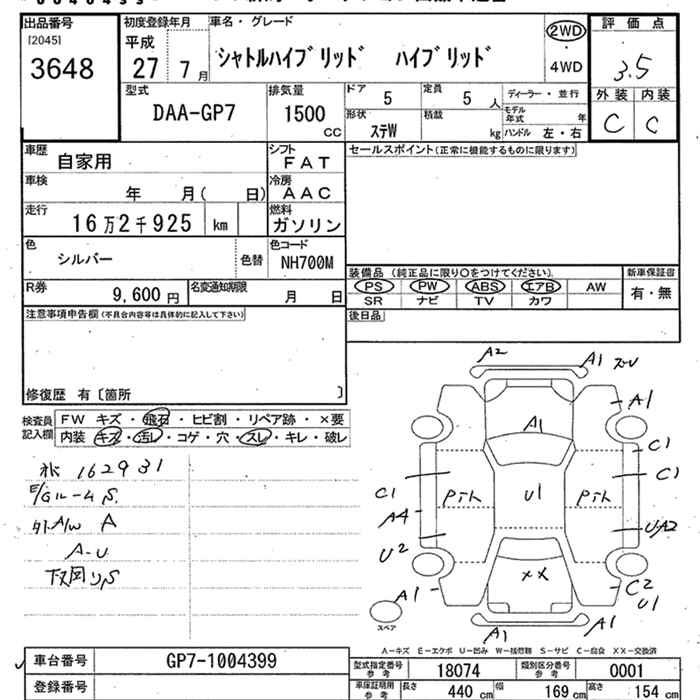 出品番号 初度登録年月 車名・グレード 評価点
[2045] 平成 2WD
3648 27 7月 シャトルハイブリッド ハイブリッド 3.5
4WD
型式 排気量 ドア 5 定員 5人 ディーラー・並行 外装 内装
DAA-GP7 1500 cc 形状 ステW 積載 kg モデル年式 年 C C
ハンドル 左・右
車歴 自家用 シフト FAT セールスポイント(正常に機能するものに限ります)
車検 年 月( 日) 冷房 AAC
走行 16万2千925 km 燃料 ガソリン
色 シルバー 色替 色コード NH700M
装備品 (純正品に限り○をつけてください) 新車保証書
R券 9,600円 名変通知期限 月 日 PS PW ABS エアB AW 有・無
SR ナビ TV カワ
注意事項申告欄(不具合内容等は具体的に記入して下さい) 後日品
修復歴 有〔箇所 〕
検査員記入欄 FW キズ・飛石・ヒビ割・リペア跡・×要
内装 キズ・汚レ・コゲ・穴・スレ・キレ・破レ
162931
E/GルームS
外A/W A
A-U
下回りS
A2 A1
A1 A1
C1
C1 U1 C1
A4 UA2
U2
XX
A1 C2
U1
スペア A1 A1
A-キズ E-エクボ U-凹み W-補修跡 S-サビ C-腐食 XX-交換済
車台番号 GP7-1004399 型式指定番号 参考 18074 類別区分番号 参考 0001
登録番号 車庫証明用 参考 長さ 440 cm 幅 169 cm 高さ 154 cm